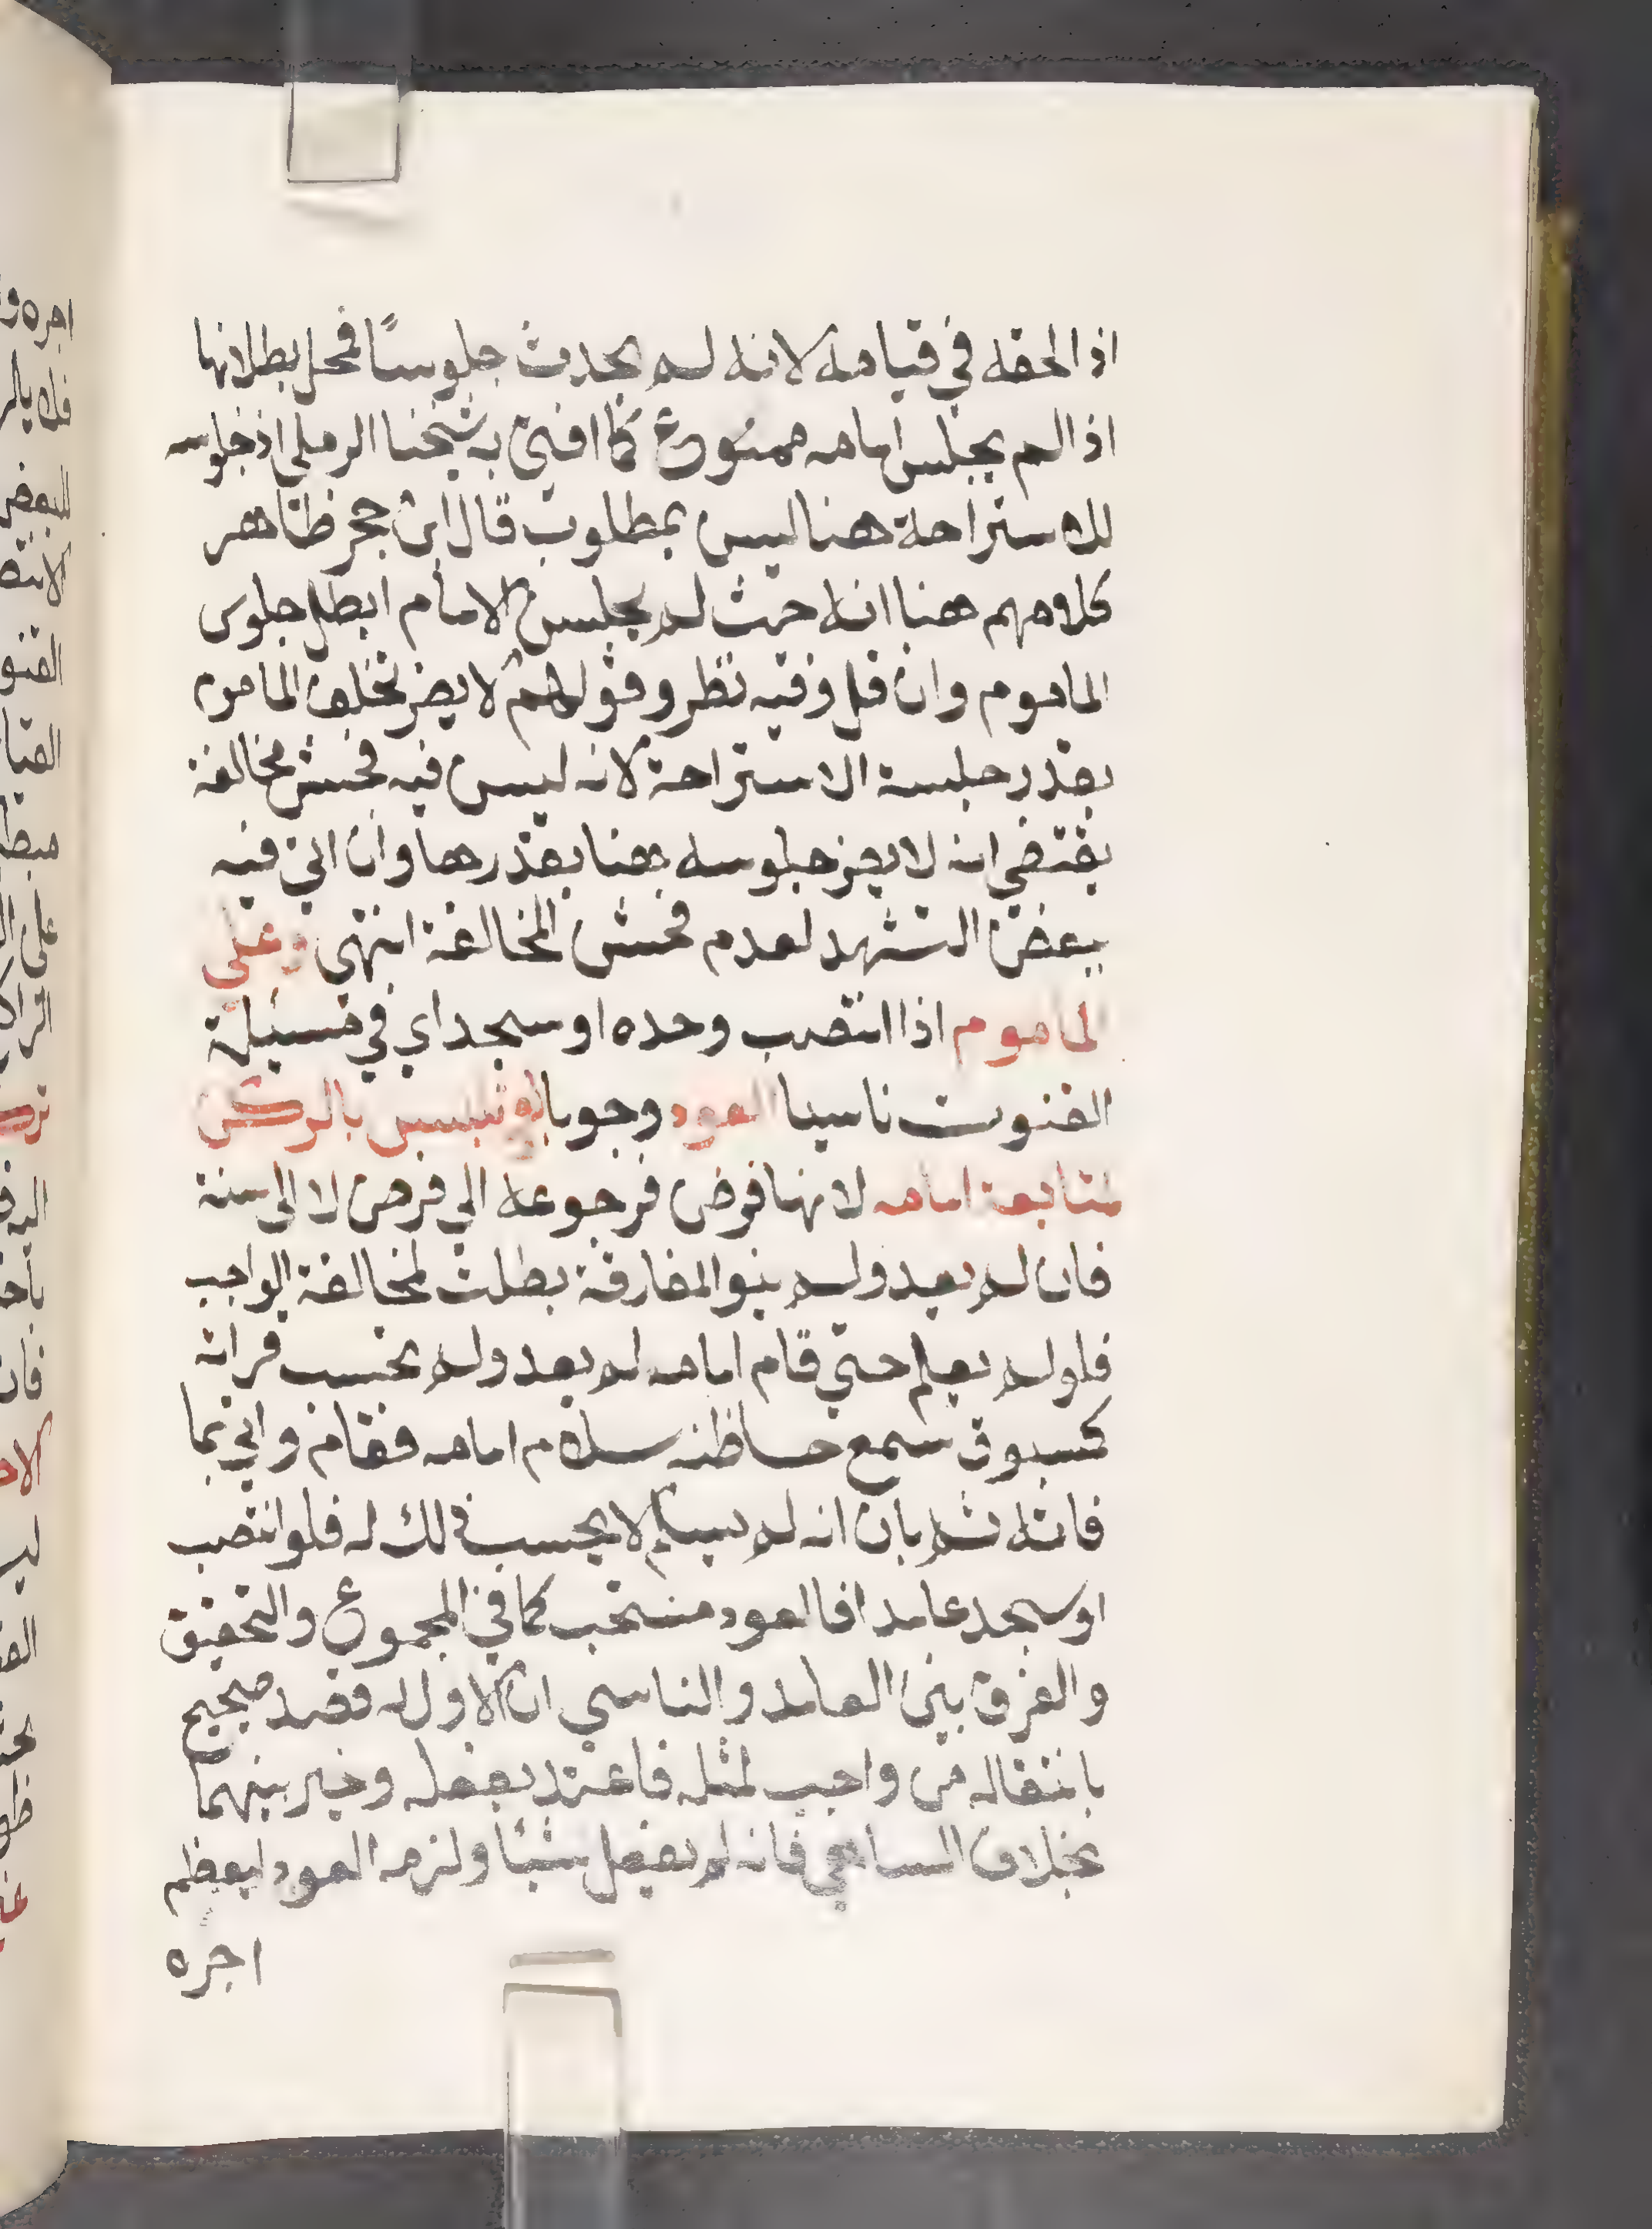 اذا لحقه في قيامه لانه لم يحدث جلوسًا فمحل بطلانها
اذا لم يجلس امامه ممنوع كما افتى به شيخنا الرملي اذ جلوسه
للاستراحة هنا ليس بمطلوب قال ابن حجر ظاهر
كلامهم هنا انه حيث لم يجلس الامام ابطل جلوس
الماموم وان قل وفيه نظر وقولهم لا يضر تخلف الماموم
بقدر جلسة الاستراحة لانه ليس فيه فحش مخالفة
يقتضي انه لا يضر جلوسه هنا بقدرها وان اتى فيه
ببعض التشهد لعدم فحش المخالفة انتهى وعلى
الماموم اذا انتصب وحده او سجد اي في مسئلة
القنوت ناسيا العود وجوبا لتلبس بالركن
لمتابعة امامه لانها فرض فرجوعه الى فرض لا الى سنة
فان لم يعد ولم ينو المفارقة بطلت لمخالفة الواجب
فلو لم يعلم حتى قام امامه لم يعد ولم تحسب قراته
كمسبوق سمع ظنه سلام امامه فقام واتى بما
فاته ثم بان انه لم يسلم لا يحسب ذلك له فلو انتصب
او سجد عامدا فالعود مستحب كما في المجموع والتحقيق
والفرق بين العامد والناسي ان الاول له قصد صحيح
بانتقاله من واجب لمثله فاعتد بفعله وخير بينهما
بخلاف الساهي فانه لم يفعل شيئا ولزمه العود ليعظم
اجره